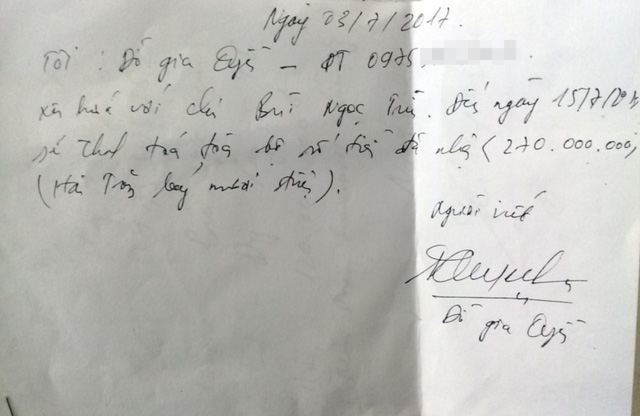 Ngày 03/7/2017.
Tôi : Đỗ gia Quyế – ĐT 0975.
xin hứa với chú Bùi Ngọc . Đến ngày 15/7/20
sẽ Thanh toán toàn bộ số tiền đã nhận (270.000.000,
(Hai Trăm bảy mươi triệu).
Người viết
Đỗ gia